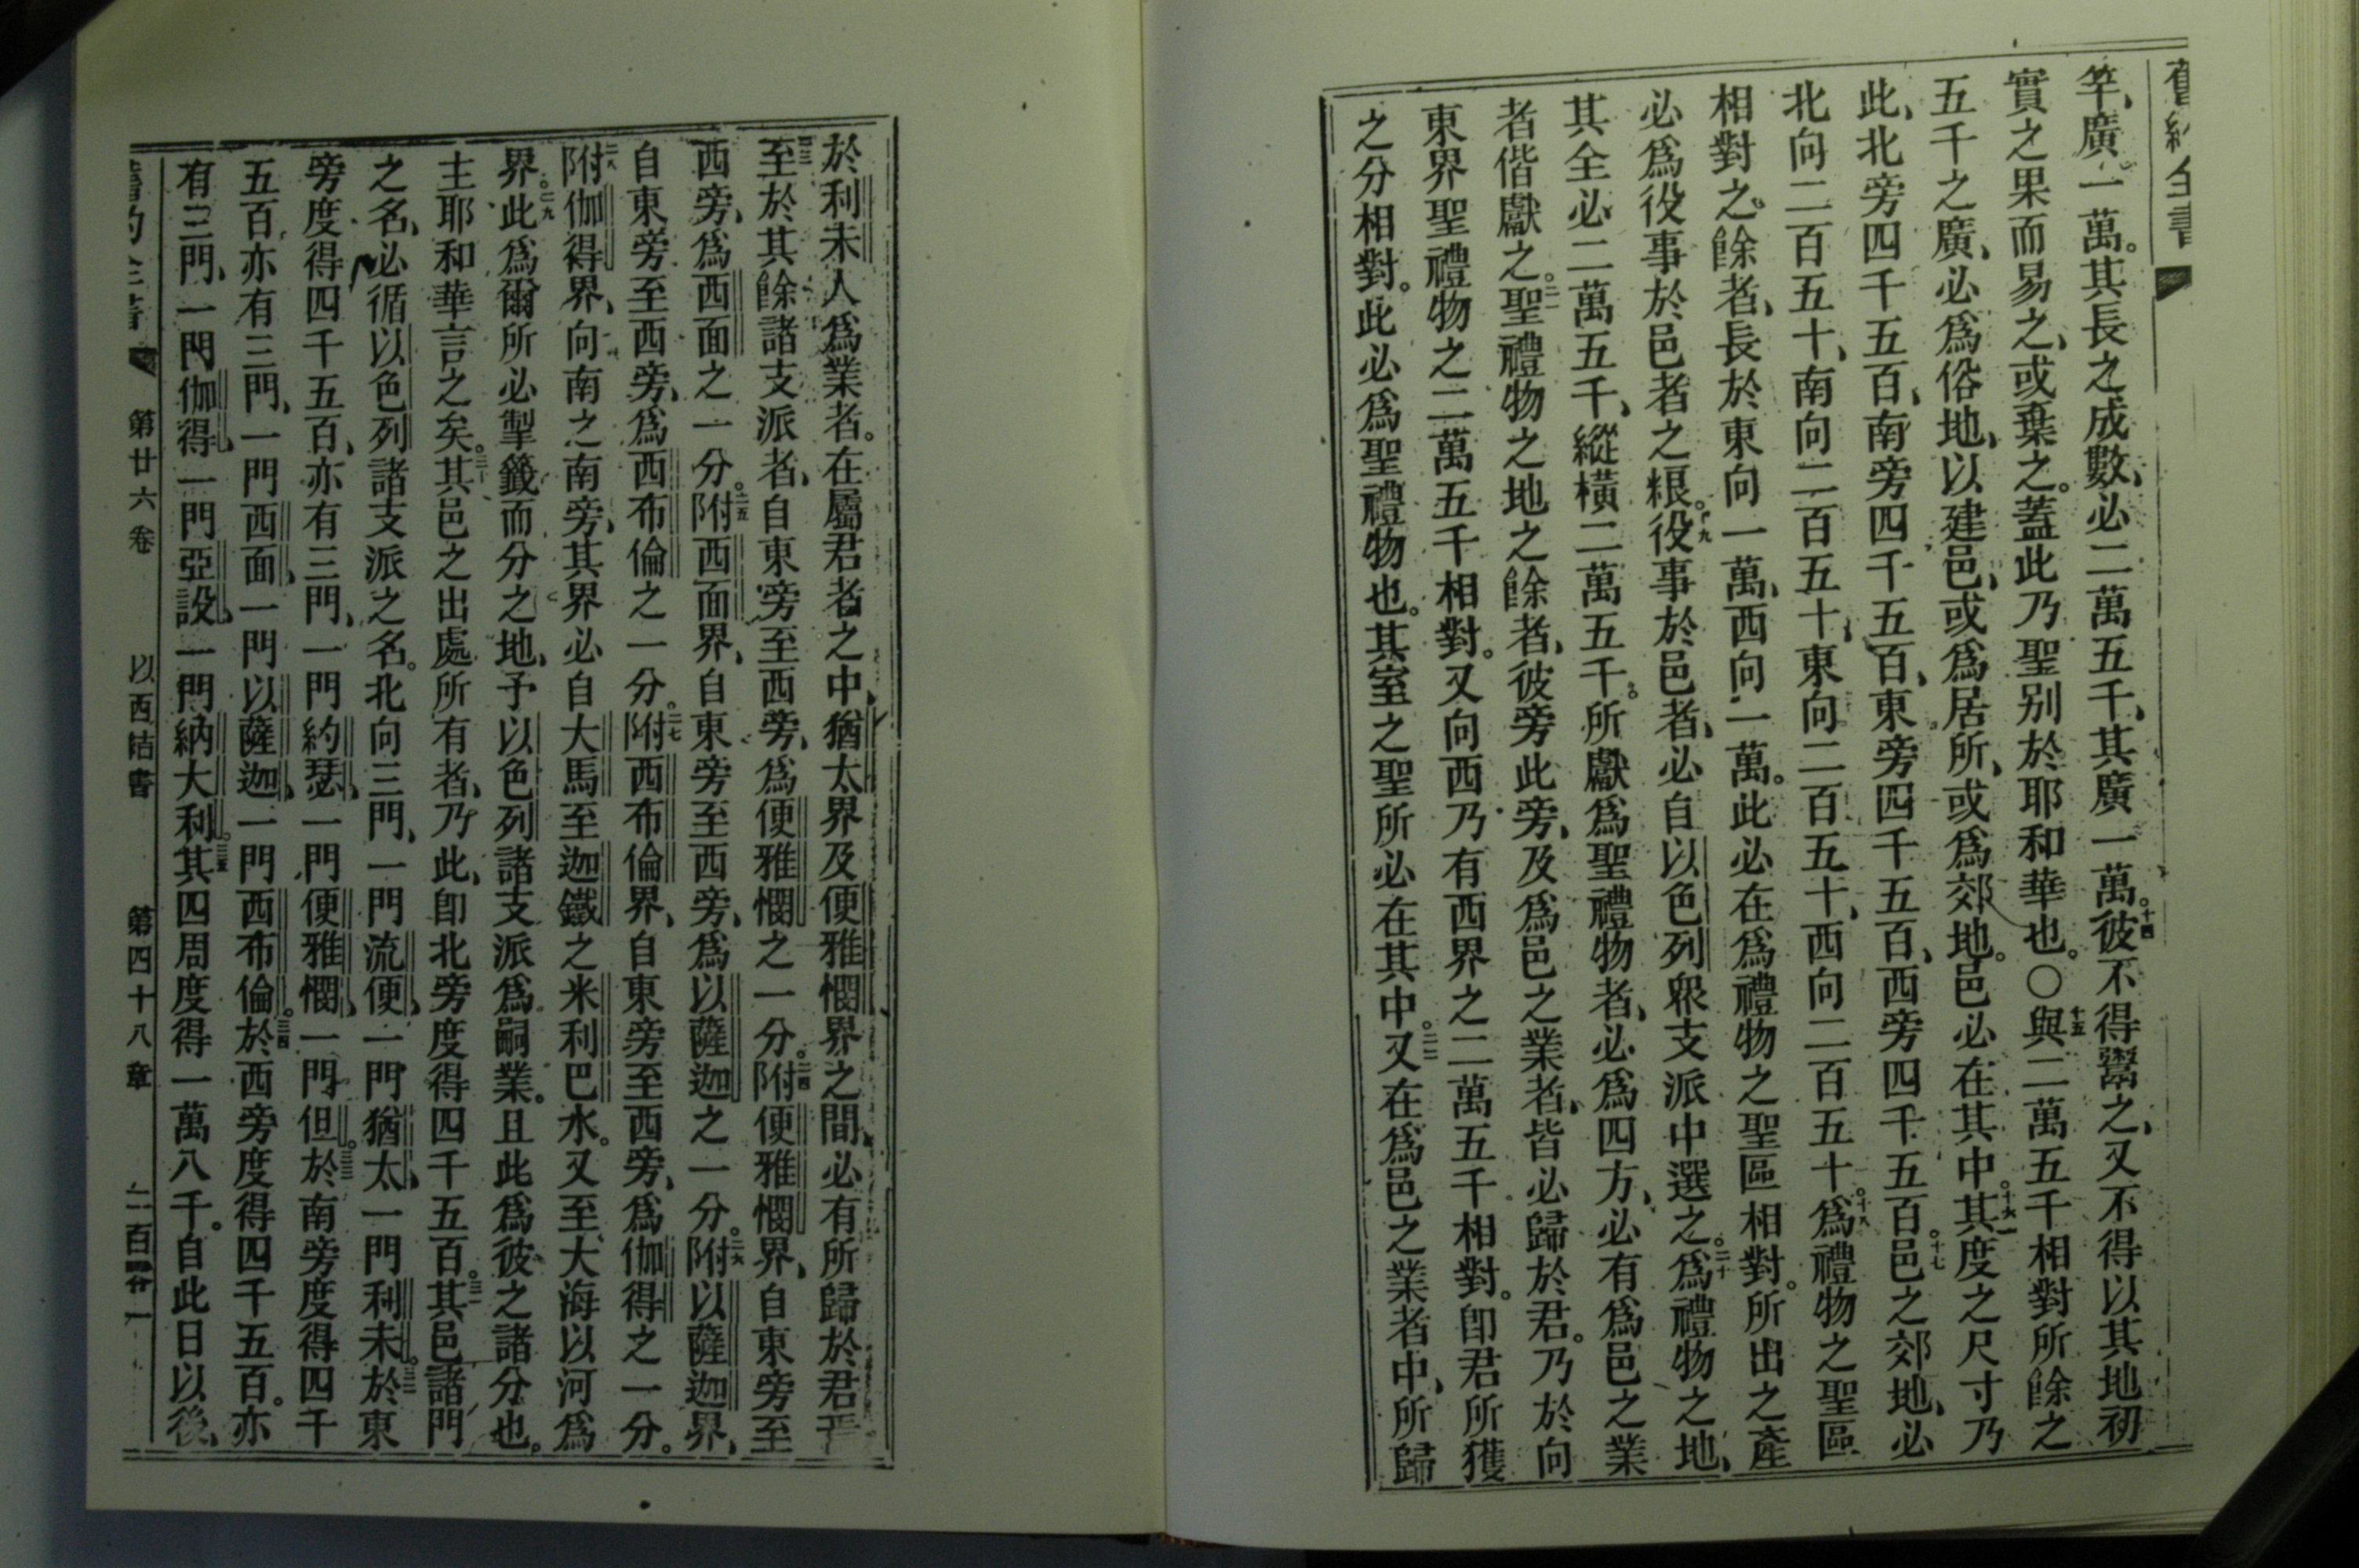 舊約全書
竿、廣一萬。其長之成數、必二萬五千、其廣一萬。十四彼不得鬻之、又不得以其地初
實之果而易之、或棄之。蓋此乃聖別於耶和華也。○十五與二萬五千相對所餘之
五千之廣、必爲俗地、以建邑、或爲居所、或爲郊地。邑必在其中。十六其度之尺寸乃
此、北旁四千五百、南旁四千五百、東旁四千五百、西旁四千五百。十七邑之郊地、必
北向二百五十、南向二百五十、東向二百五十、西向二百五十。十八爲禮物之聖區
相對之。餘者、長於東向一萬、西向一萬。此必在爲禮物之聖區相對。所出之產
必爲役事於邑者之粮。十九役事於邑者、必自以色列眾支派中選之。二十爲禮物之地、
其全必二萬五千、縱橫二萬五千。所獻爲聖禮物者、必爲四方、必有爲邑之業
者偕獻之。二一聖禮物之地之餘者、彼旁此旁、及爲邑之業者、皆必歸於君。乃於向
東界聖禮物之二萬五千相對。又向西乃有西界之二萬五千相對。卽君所獲
之分相對。此必爲聖禮物也。其室之聖所必在其中。二二又在爲邑之業者中、所歸
於利未人爲業者。在屬君者之中、猶太界及便雅憫界之間、必有所歸於君焉
二三至於其餘諸支派者、自東旁至西旁、爲便雅憫之一分。二四附便雅憫界、自東旁至
西旁、爲西面之一分。二五附西面界、自東旁至西旁、爲以薩迦之一分。二六附以薩迦界、
自東旁至西旁、爲西布倫之一分。二七附西布倫界、自東旁至西旁、爲伽得之一分。
二八附伽得界、向南之南旁、其界必自大馬至迦鐵之米利巴水。又至大海以河爲
界。二九此爲爾所必掣籤而分之地、予以色列諸支派爲嗣業。且此爲彼之諸分也。
主耶和華言之矣。三十其邑之出處所有者、乃此、卽北旁度得四千五百。三一其邑諸門
之名、必循以色列諸支派之名。北向三門、一門流便、一門猶太、一門利未。三二於東
旁度得四千五百、亦有三門、一門約瑟、一門便雅憫、一門但。三三於南旁度得四千
五百亦有三門、一門西面、一門以薩迦、一門西布倫。三四於西旁度得四千五百。亦
有三門、一門伽得、一門亞設、一門納大利。三五其四周度得一萬八千。自此日以後、
舊約全書 第廿六卷 以西結書 第四十八章 二百